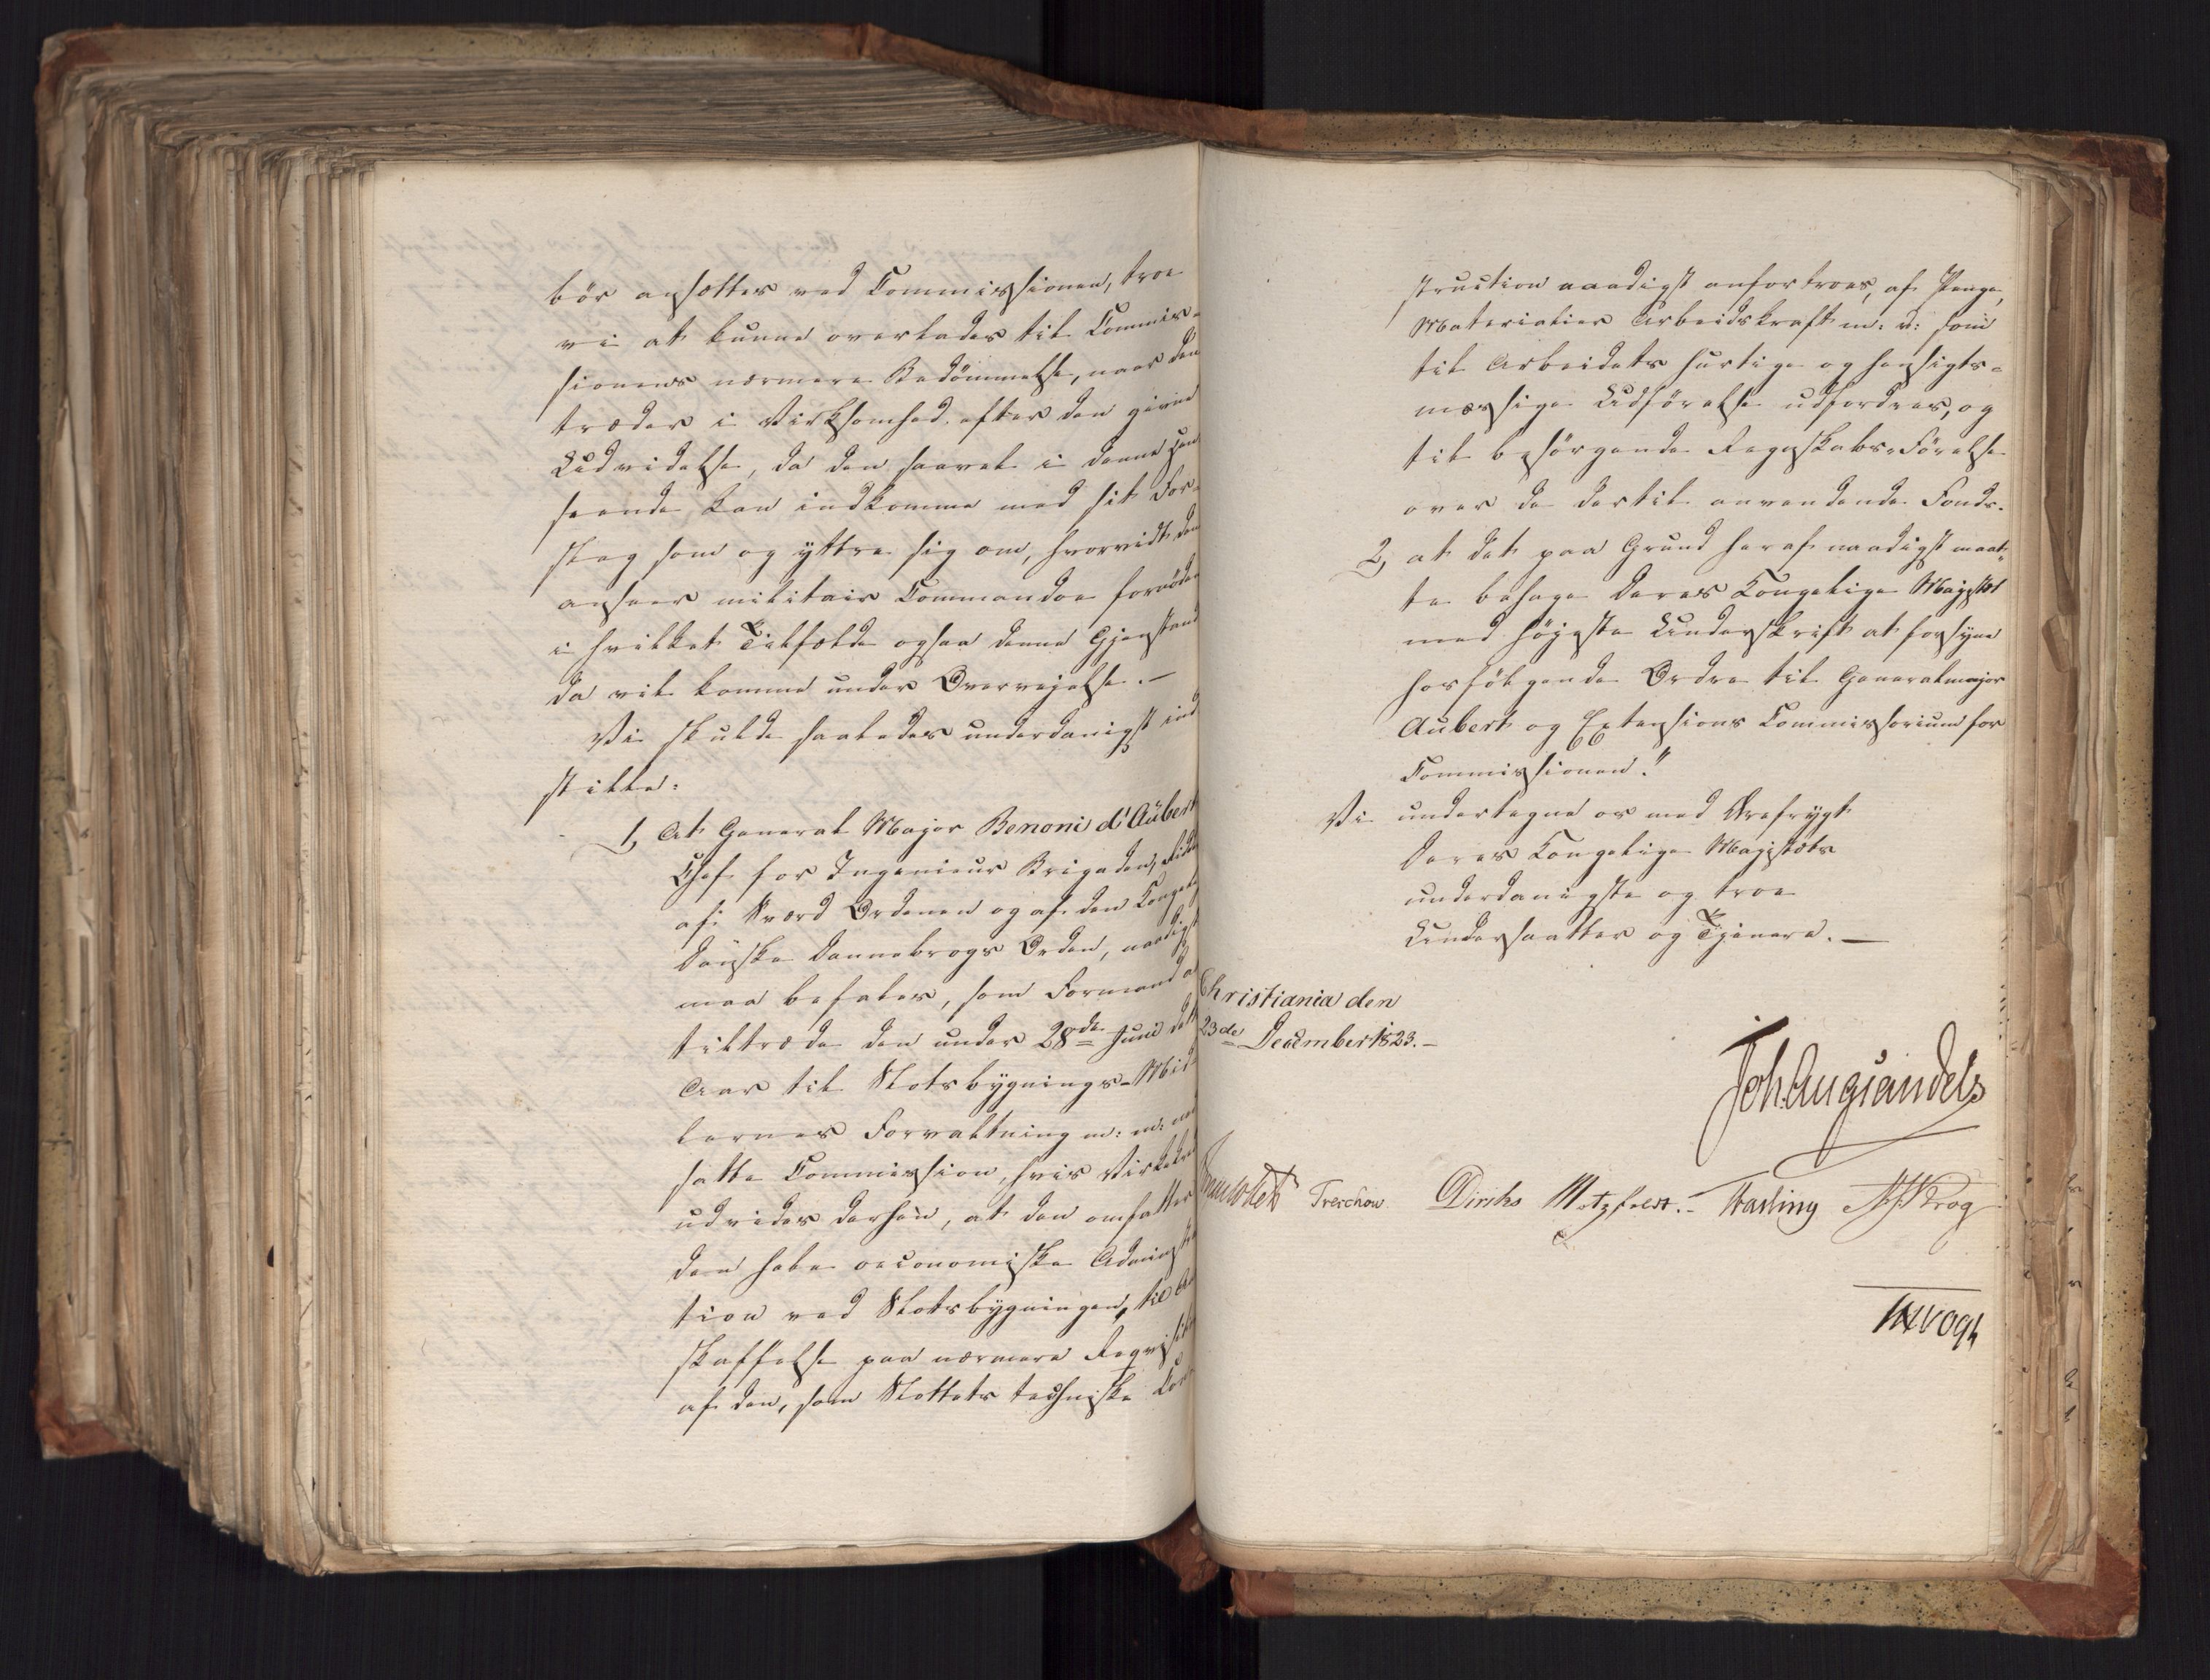 bör ansættes ved Commissionen, troe
vi at kunne overlades til Commis-
sionens nærmere Bedömmelse, naar den
træder i Virksomhed efter den givne
Udvidelse, da den saavel i denne Hen
seende kan indkomme med sit For-
slag som og yttre sig om, hvorvidt den
anseer militair Commandoe fornöden
i hvilket Tilfælde ogsaa denne Gjenstand
da vil komme under Overveielse. —
Vi skulde saaledes underdanigst ind
stille:
1, At General Major Benoni d'Aubert
Chef for Ingenieur Brigaden, Ridder
af Sværd Ordenen og af den Kongelig
Danske Dannebrogs Orden, naadigst
maa befales, som Formand a
tiltræde den under 28de Juni dette
Aar til Slotsbygnings-Mid-
lernes Forvaltning m: m: ned
satte Commission, hvis Virkekreds
udvides derhen, at den omfatter
den hele oeconomiske Administra
tion ved Slotsbygningen, til An
skaffelse paa nærmere Reqvisition
af den, som Slottets techniske Con
struction naadigst anfortroes, af Penge,
Materialier Arbeidskraft m: v: som
til Arbeidets hurtige og hensigts-
mæssige Udförelse udfordres, og
til besörgende Regnskabs-Förelse
over de dertil anvendende Fonds.
2, at det paa Grund heraf naadigst maat-
te behage Deres Kongelige Majestæt
med höieste Underskrift at forsyne
hosfölgende Ordre til Generalmajor
Aubert og Extensions Commissorium for
Commissionen."
Vi undertegne os med Ærefrygt
Deres Kongelige Majestæts
underdanigste og troe
Undersaatter og Tjenere. —
Christiania den
23de December 1823. —
Joh. Aug. Sandels
Sommerhielm Treschow Diriks Motzfeldt. Fasting J. H. Krog
J. H. Vogt